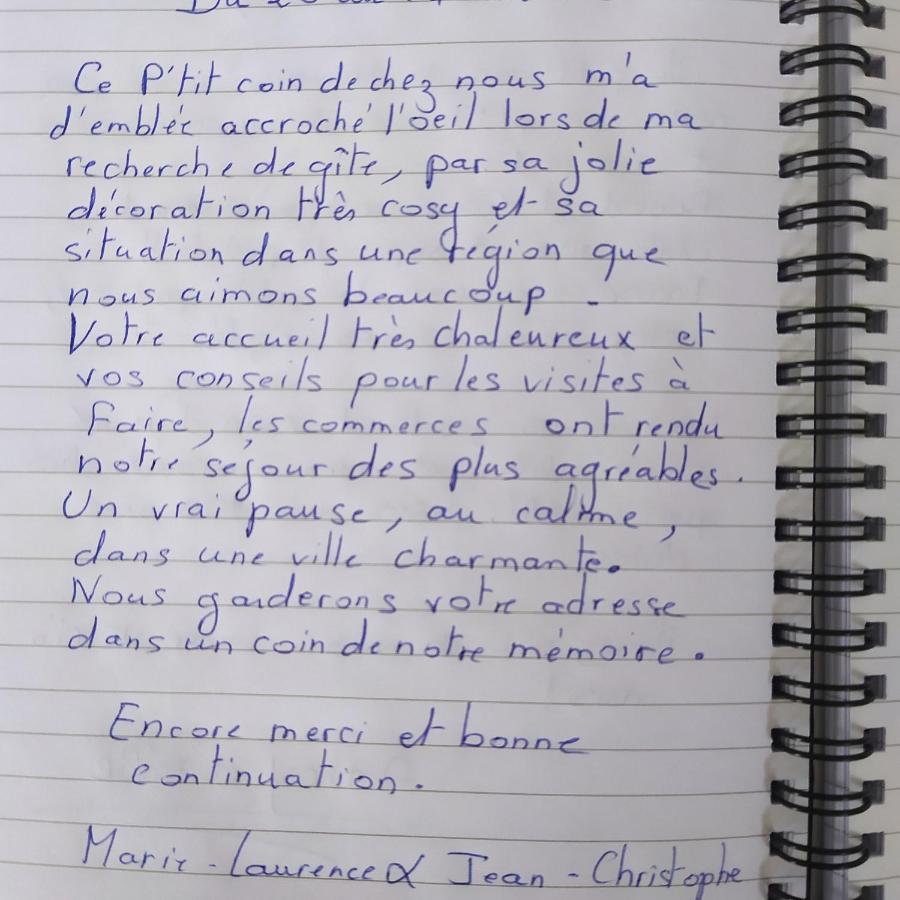 Du
Ce P'tit coin de chez nous m'a
d'emblée accroché l'oeil lors de ma
recherche de gîte, par sa jolie
décoration très cosy et sa
situation dans une région que
nous aimons beaucoup.
Votre accueil très chaleureux et
vos conseils pour les visites à
faire, les commerces ont rendu
notre séjour des plus agréables.
Un vrai pause, au calme,
dans une ville charmante.
Nous garderons votre adresse
dans un coin de notre mémoire.
Encore merci et bonne
continuation.
Marie-Laurence & Jean-Christophe